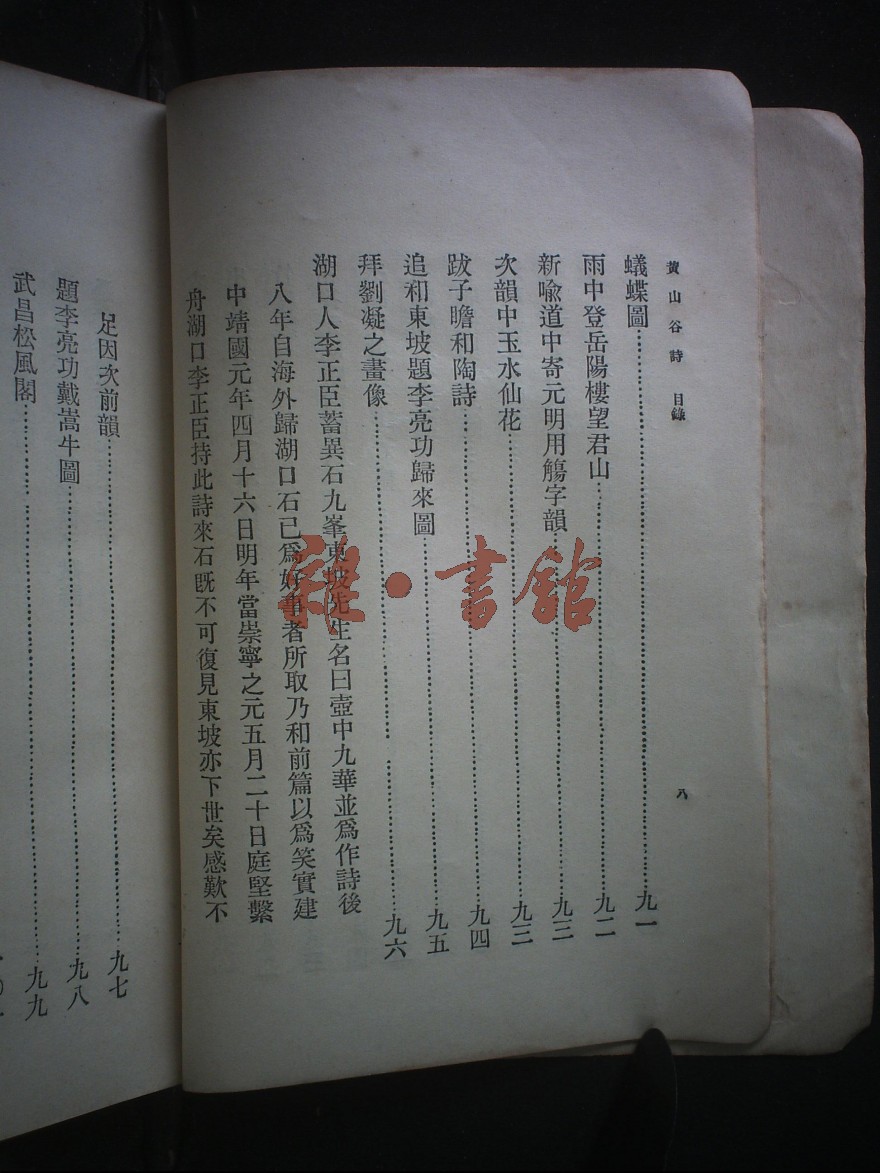 黃山谷詩 目錄 八
蟻蝶圖……九一
雨中登岳陽樓望君山……九二
新喩道中寄元明用觴字韻……九三
次韻中玉水仙花……九三
跋子瞻和陶詩……九四
追和東坡題李亮功歸來圖……九五
拜劉凝之畫像……九六
湖口人李正臣蓄異石九峯東坡先生名曰壺中九華並爲作詩後
八年自海外歸湖口石已爲好事者所取乃和前篇以爲笑實建
中靖國元年四月十六日明年當崇寧之元五月二十日庭堅繫
舟湖口李正臣持此詩來石旣不可復見東坡亦下世矣感歎不
足因次前韻……九七
題李亮功戴嵩牛圖……九八
武昌松風閣……九九
雜·書館